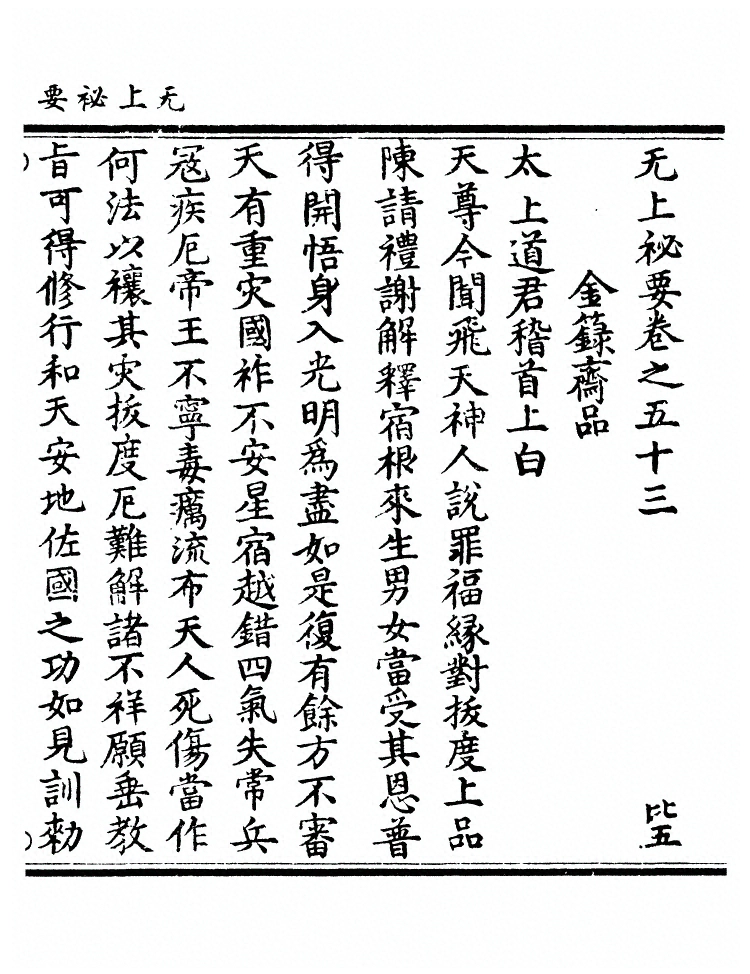 无上祕要
无上祕要卷之五十三 比五
金籙齋品
太上道君稽首上白
天尊今聞飛天神人說罪福緣對拔度上品
陳請禮謝解釋宿根來生男女當受其恩普
得開悟身入光明爲盡如是復有餘方不審
天有重灾國祚不安星宿越錯四氣失常兵
寇疾厄帝王不寧毒癘流布天人死傷當作
何法以禳其灾拔度厄難解諸不祥願垂教
旨可得修行和天安地佐國之功如見訓勑